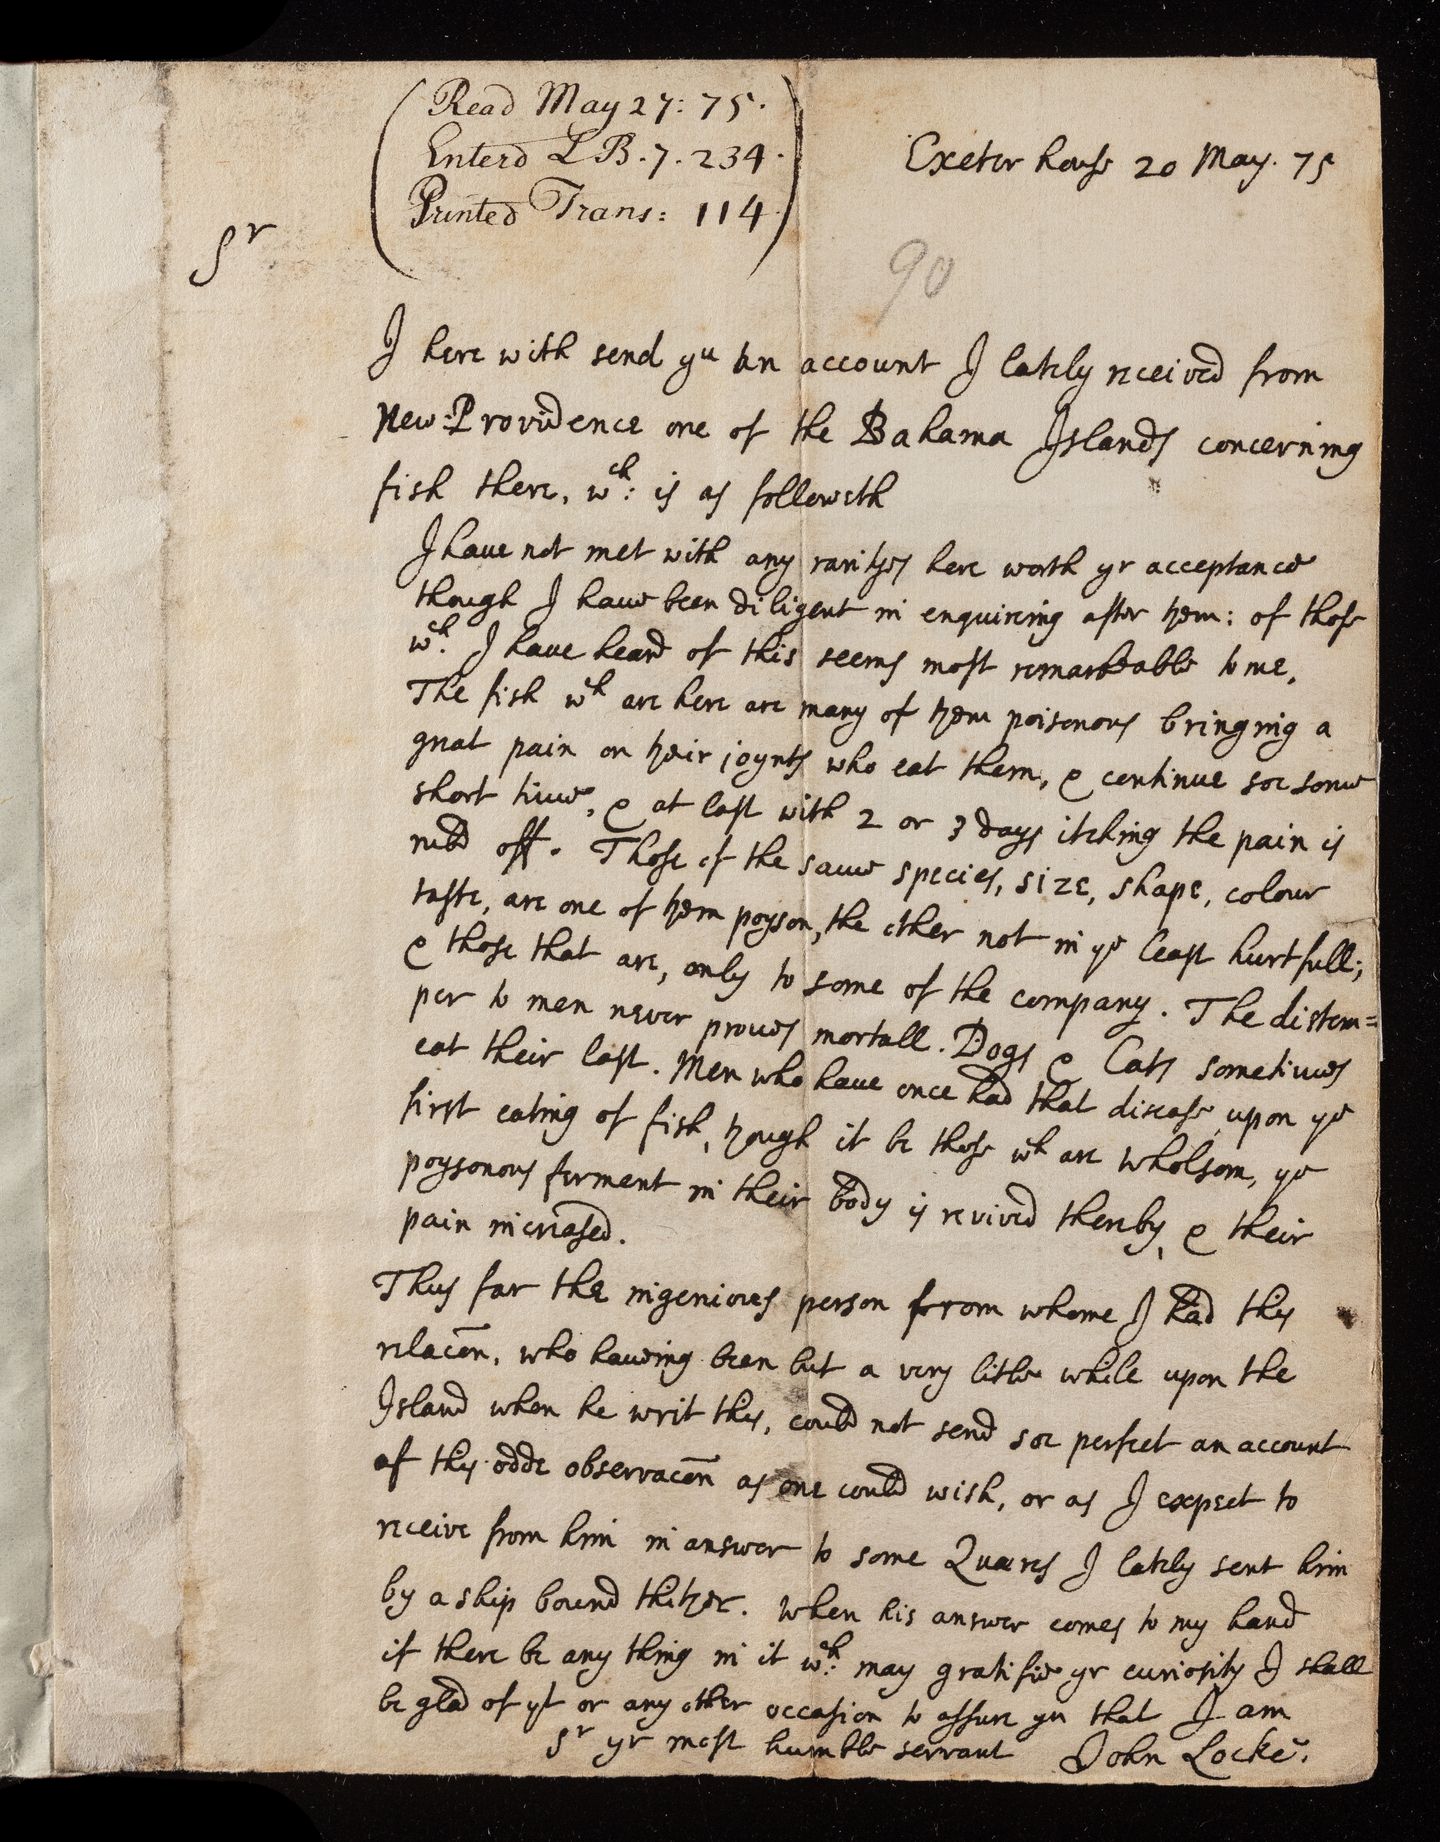 Read May 27: 75.
Enterd L B. 7. 234.
Printed Trans: 114.
Exeter house 20 May. 75
Sr
90
I here with send yu an account I lately received from
New-Providence one of the Bahama Islands concerning
fish there, wch: is as followeth
I have not met with any rarityes here worth yr acceptance
though I have been diligent in enquireing after them: of those
wch. I have heard of this seems most remarkeable to me.
The fish wch are here are many of them poisonous bringing a
great pain on their joynts who eat them, & continue soe some
short time, & at last with 2 or 3 days itching the pain is
rubd off. Those of the same species, size, shape, colour
taste, are one of them poyson, the other not in ye least hurtfull;
& those that are, only to some of the company. The distem=
per to men never proves mortall. Dogs & Cats sometimes
eat their last. Men who have once had that disease, upon ye
first eating of fish, though it be those wch are wholsom, ye
poysonous ferment in their body is revived thereby, & their
pain increased.
Thus far the ingenious person from whome I had this
relacōn, who haveing been but a very litle while upon the
Island when he writ this, could not send soe perfect an account
of this odde observacōn as one could wish, or as I expect to
receive from him in answer to some Quaeres I lately sent him
by a ship bound thither. When his answer comes to my hand
if there be any thing in it wch: may gratifie yr curiosity I shall
be glad of yt or any other occasion to assure yu that I am
Sr yr most humble servant John Locke.